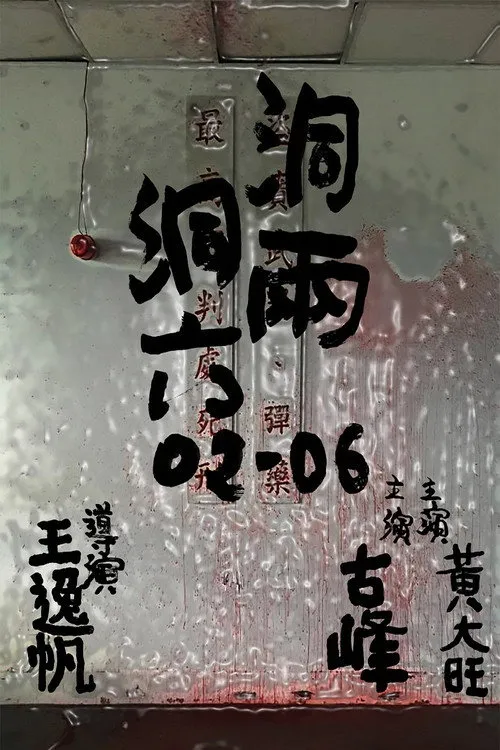 洞兩
洞六
02-06
盜賣武、彈藥
最高判處死刑
主演
黃大旺
主演
古峰
導演
王逸帆